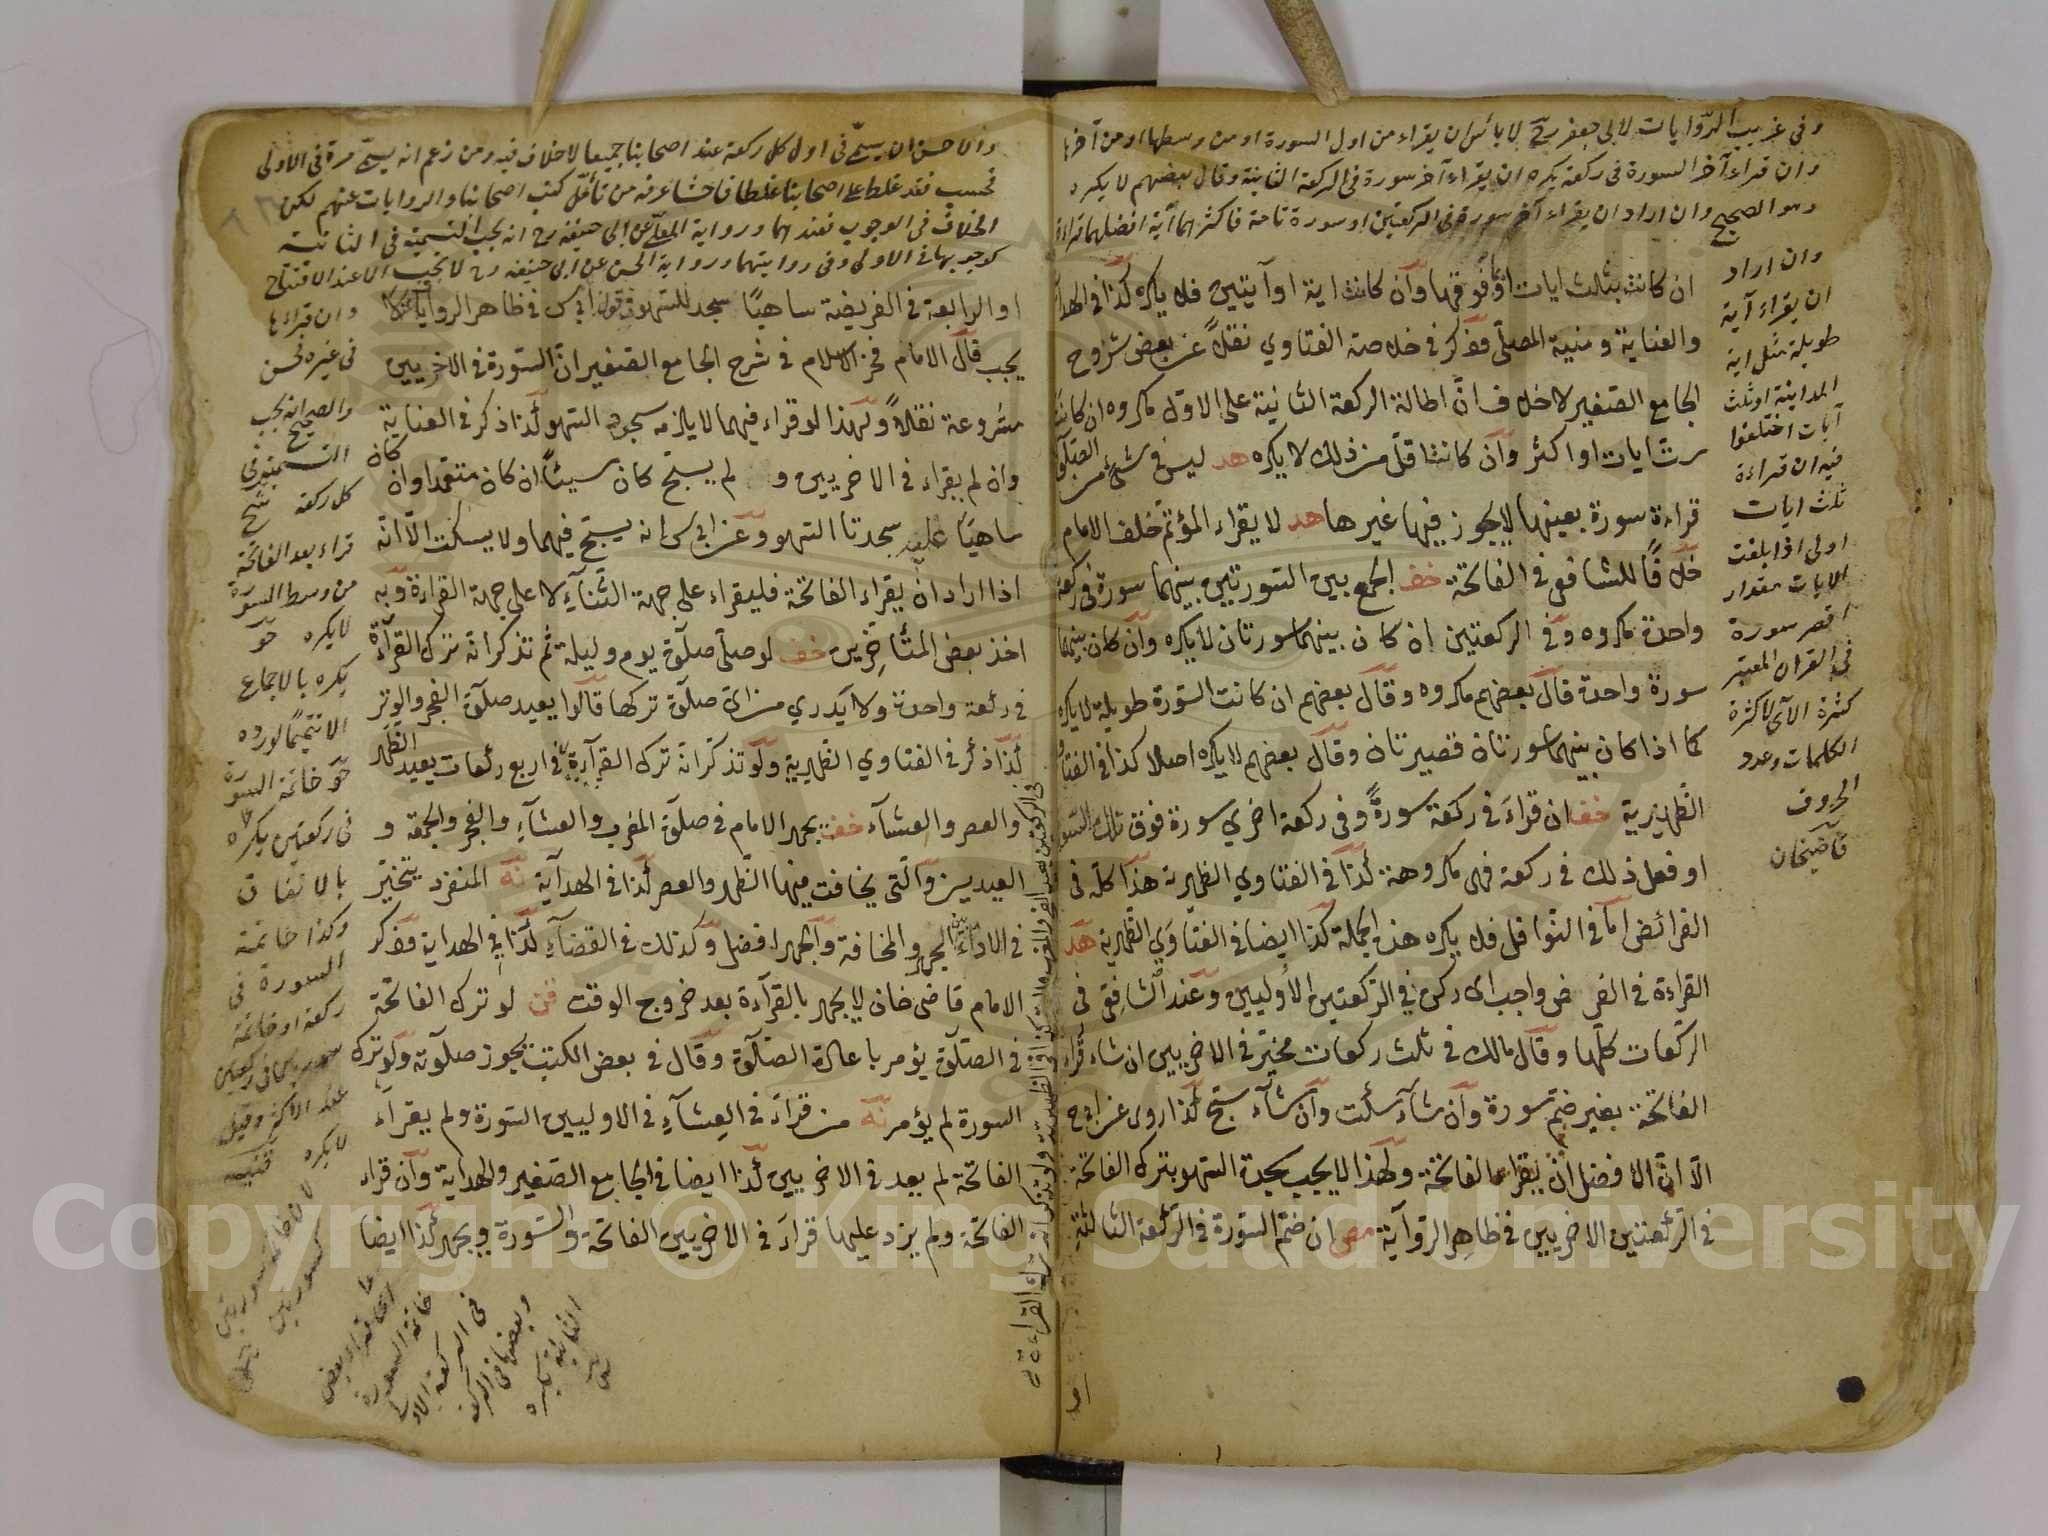 وفي غريب الروايات لابي جعفر رح لا باس ان يقراء من اول السورة او من وسطها او من آخرها
وان قراء آخر السورة في ركعة يكره ان يقراء آخر سورة في الركعة الثانية وقال بعضهم لا يكره
وهو الصحيح وان اراد ان يقراء آخر سورة في الركعتين او سورة تامة فاكثرهما آية افضلهما قراءة
وان اراد
ان يقراء آية
طويلة مثل اية
المداينة او ثلث
آيات اختلفوا
فيه ان قراءة
ثلث ايات
اولى اذا بلغت
الايات مقدار
اقصر سورة
في القران المعتبر
كثرة الآي لا كثرة
الكلمات وعدد
الحروف
قاضيخان
ان كانت بثلث ايات او فوقها وان كانت اية او آيتين فلا يكره كذا في الهداية
والغناية ومنية المصلي فذكر في خلاصة الفتاوي نقلاً عن بعض شروح
الجامع الصغير لا خلاف ان اطالة الركعة الثانية على الاول مكروه ان كانت
ست ايات او اكثر وان كانت اقل من ذلك لا يكره هد ليس في شئ من الصلوة
قراءة سورة بعينها لا يجوز فيها غيرها هد لا يقراء المؤتم خلف الامام
خلافاً للشافعي في الفاتحة خف الجمع بين السورتين بينهما سورة في ركعة
واحدة مكروه وفي الركعتين ان كان بينهما سورتان لا يكره وان كان بينهما
سورة واحدة قال بعضهم مكروه وقال بعضهم ان كانت السورة طويلة لا يكره
كما اذا كان بينهما سورتان قصيرتان وقال بعضهم لا يكره اصلا كذا في الفتاوي
الظهيرية خف ان قراء في ركعة سورةً وفي ركعة اخري سورة فوق تلك السورة
او فعل ذلك في ركعة فهي مكروهة كذا في الفتاوي الظهيرية هذا كله في
الفرائض اما في النوافل فلا يكره هذه الجملة كذا ايضا في الفتاوي الظهيرية هد
القراءة في الفرض واجب اى ركن في الركعتين الاوليين وعند الشافعي في
الركعات كلها وقال مالك في ثلث ركعات مخير في الاخريين ان شاء قراء
الفاتحة بغير ضم سورة وان شاء سكت وان شاء سبح كذا روى عن ابي ح
الا ان الافضل ان يقراء الفاتحة ولهذا لا يجب سجدة السهو بترك الفاتحة
في الركعتين الاخريين في ظاهر الرواية مص ان ضم السورة في الركعة الثالثة
والاحسن ان يسمي في اول كل ركعة عند اصحابنا جميعا لا خلاف فيه ومن زعم انه يسمي مرة في الاولى
فحسب فقد غلط على اصحابنا غلطا فاحشا عرفه من تأمل كتب اصحابنا والروايات عنهم لكن
الخلاف في الوجوب فعندهما ورواية المعلى عن ابي حنيفة رح انه يجب التسمية في الثانية
كوجوبها في الاولى وفي روايتهما ورواية الحسن عن ابي حنيفة رح لا يجب الا عند الافتتاح
وان قراءها
في غيره فحسن
والصحيح انه يجب
التسمية في
كل ركعة شح
قراء بعد الفاتحة
من وسط السورة
لا يكره
يكره بالاجماع
خاتمة السورة
في ركعتين يكره
بالاتفاق
وكذا خاتمة
السورة في
ركعة او خاتمة
عند الاكثر وقيل
لا يكره قنيه
او الرابعة في الفريضة ساهيًا سجد للسهو في قول ابي س في ظاهر الروايات لا
يجب قال الامام فخر الاسلام في شرح الجامع الصغير ان السورة في الاخريين
مشروعة نقلاً ولهذا لو قراء فيهما لا يلزمه سجود السهو كذا ذكر في الغناية
وان لم يقراء في الاخريين ولم يسبح كان مسيئا ان كان متعمدا وان كان
ساهيًا عليه سجدتا السهو وعن ابي س انه يسبح فيهما ولا يسكت الا انه
اذا اراد ان يقراء الفاتحة فليقراء على جهة الثناء لا على جهة القراءة وبه
اخذ بعض المتأخرين خف لو صلى صلوة يوم وليلة ثم تذكر انه ترك القراءة
في ركعة واحدة ولا يدري من اى صلوة تركها قالوا يعيد صلوة الفجر والوتر
كذا ذكر في الفتاوي الظهيرية ولو تذكر انه ترك القراءة في اربع ركعات يعيد الظهر
والعصر والعشاء خف يجهر الامام في صلوة المغرب والعشاء والفجر والجمعة و
العيدين والتي يخافت فيها الظهر والعصر كذا في الهداية نه المنفرد يتخير
في الاداء بين الجهر والمخافة والجهر افضل وكذلك في القضاء كذا في الهداية فذكر
الامام قاضى خان لا يجهر بالقراءة بعد خروج الوقت قن لو ترك الفاتحة
في الصلوة يؤمر باعادة الصلوة وقال في بعض الكتب يجوز صلوته ولو ترك
السورة لم يؤمر نه من قراء في العشاء في الاوليين السورة ولم يقراء
الفاتحة لم يعد في الاخريين كذا ايضا في الجامع الصغير والهداية وان قراء
الفاتحة ولم يزد عليها قراء في الاخريين الفاتحة والسورة ويجهر كذا ايضا
خاتمة السورة
في الركعة الاولى
وبعضها في الركعة
الثانية يكره
Copyright © King Saud University